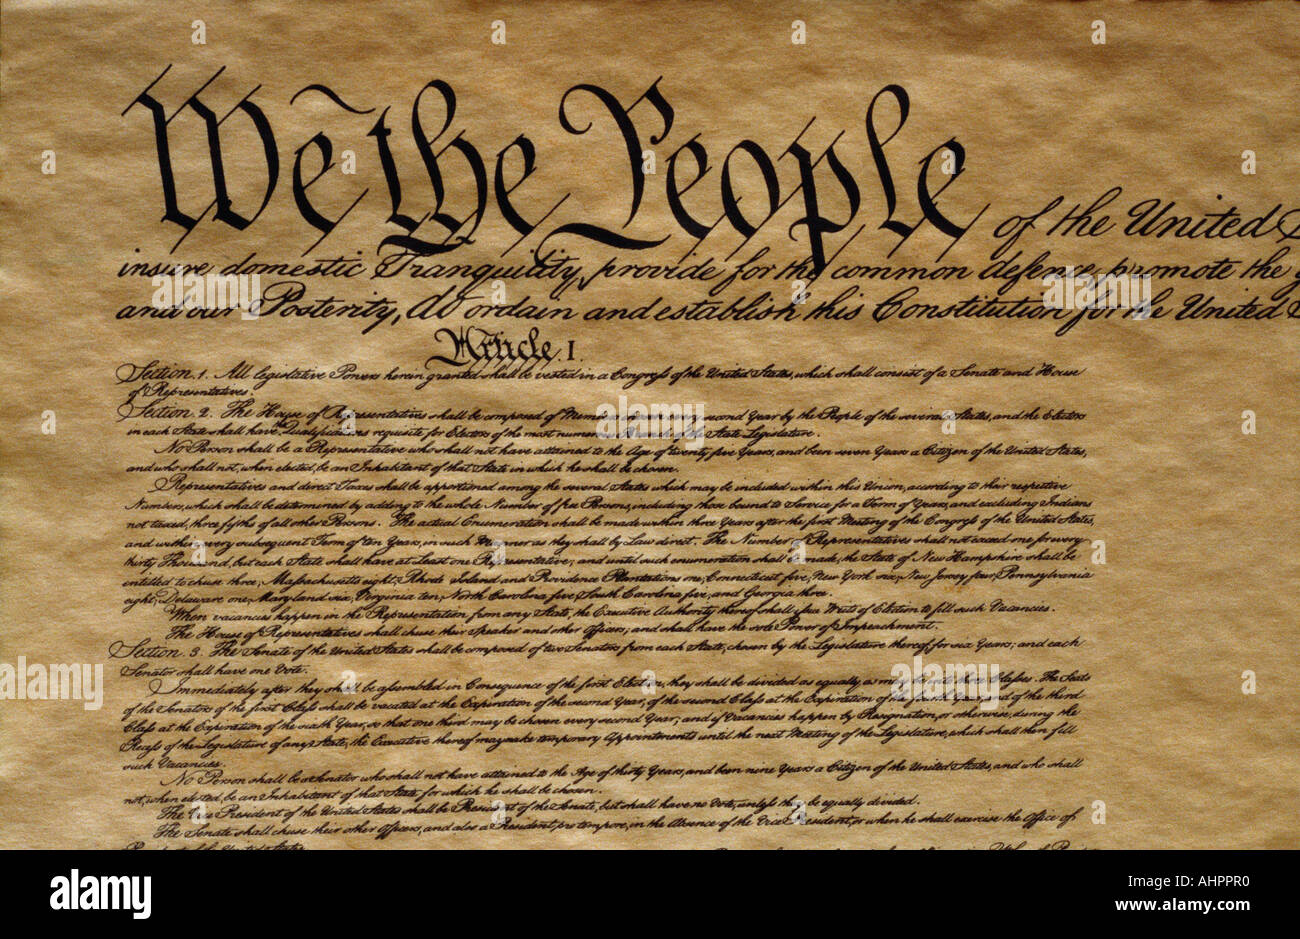 We the People of the United
insure domestic Tranquility, provide for the common defence, promote the
and our Posterity, do ordain and establish this Constitution for the United
Article. I.
Section. 1. All legislative Powers herein granted shall be vested in a Congress of the United States, which shall consist of a Senate and House
of Representatives.
Section. 2. The House of Representatives shall be composed of Members chosen every second Year by the People of the several States, and the Electors
in each State shall have the Qualifications requisite for Electors of the most numerous Branch of the State Legislature.
No Person shall be a Representative who shall not have attained to the Age of twenty five Years, and been seven Years a Citizen of the United States,
and who shall not, when elected, be an Inhabitant of that State in which he shall be chosen.
Representatives and direct Taxes shall be apportioned among the several States which may be included within this Union, according to their respective
Numbers, which shall be determined by adding to the whole Number of free Persons, including those bound to Service for a Term of Years, and excluding Indians
not taxed, three fifths of all other Persons. The actual Enumeration shall be made within three Years after the first Meeting of the Congress of the United States,
and within every subsequent Term of ten Years, in such Manner as they shall by Law direct. The Number of Representatives shall not exceed one for every
thirty Thousand, but each State shall have at Least one Representative; and until such enumeration shall be made, the State of New Hampshire shall be
entitled to chuse three, Massachusetts eight, Rhode Island and Providence Plantations one, Connecticut five, New York six, New Jersey four, Pennsylvania
eight, Delaware one, Maryland six, Virginia ten, North Carolina five, South Carolina five, and Georgia three.
When vacancies happen in the Representation from any State, the Executive Authority thereof shall issue Writs of Election to fill such Vacancies.
The House of Representatives shall chuse their Speaker and other Officers; and shall have the sole Power of Impeachment.
Section. 3. The Senate of the United States shall be composed of two Senators from each State, chosen by the Legislature thereof, for six Years; and each
Senator shall have one Vote.
Immediately after they shall be assembled in Consequence of the first Election, they shall be divided as equally as may be into three Classes. The Seats
of the Senators of the first Class shall be vacated at the Expiration of the second Year, of the second Class at the Expiration of the fourth Year, and of the third
Class at the Expiration of the sixth Year, so that one third may be chosen every second Year; and if Vacancies happen by Resignation, or otherwise, during the
Recess of the Legislature of any State, the Executive thereof may make temporary Appointments until the next Meeting of the Legislature, which shall then fill
such Vacancies.
No Person shall be a Senator who shall not have attained to the Age of thirty Years, and been nine Years a Citizen of the United States, and who shall
not, when elected, be an Inhabitant of that State for which he shall be chosen.
The Vice President of the United States shall be President of the Senate, but shall have no Vote, unless they be equally divided.
The Senate shall chuse their other Officers, and also a President pro tempore, in the Absence of the Vice President, or when he shall exercise the Office of
alamy
a
alamy
Image ID: AHPPR0
www.alamy.com